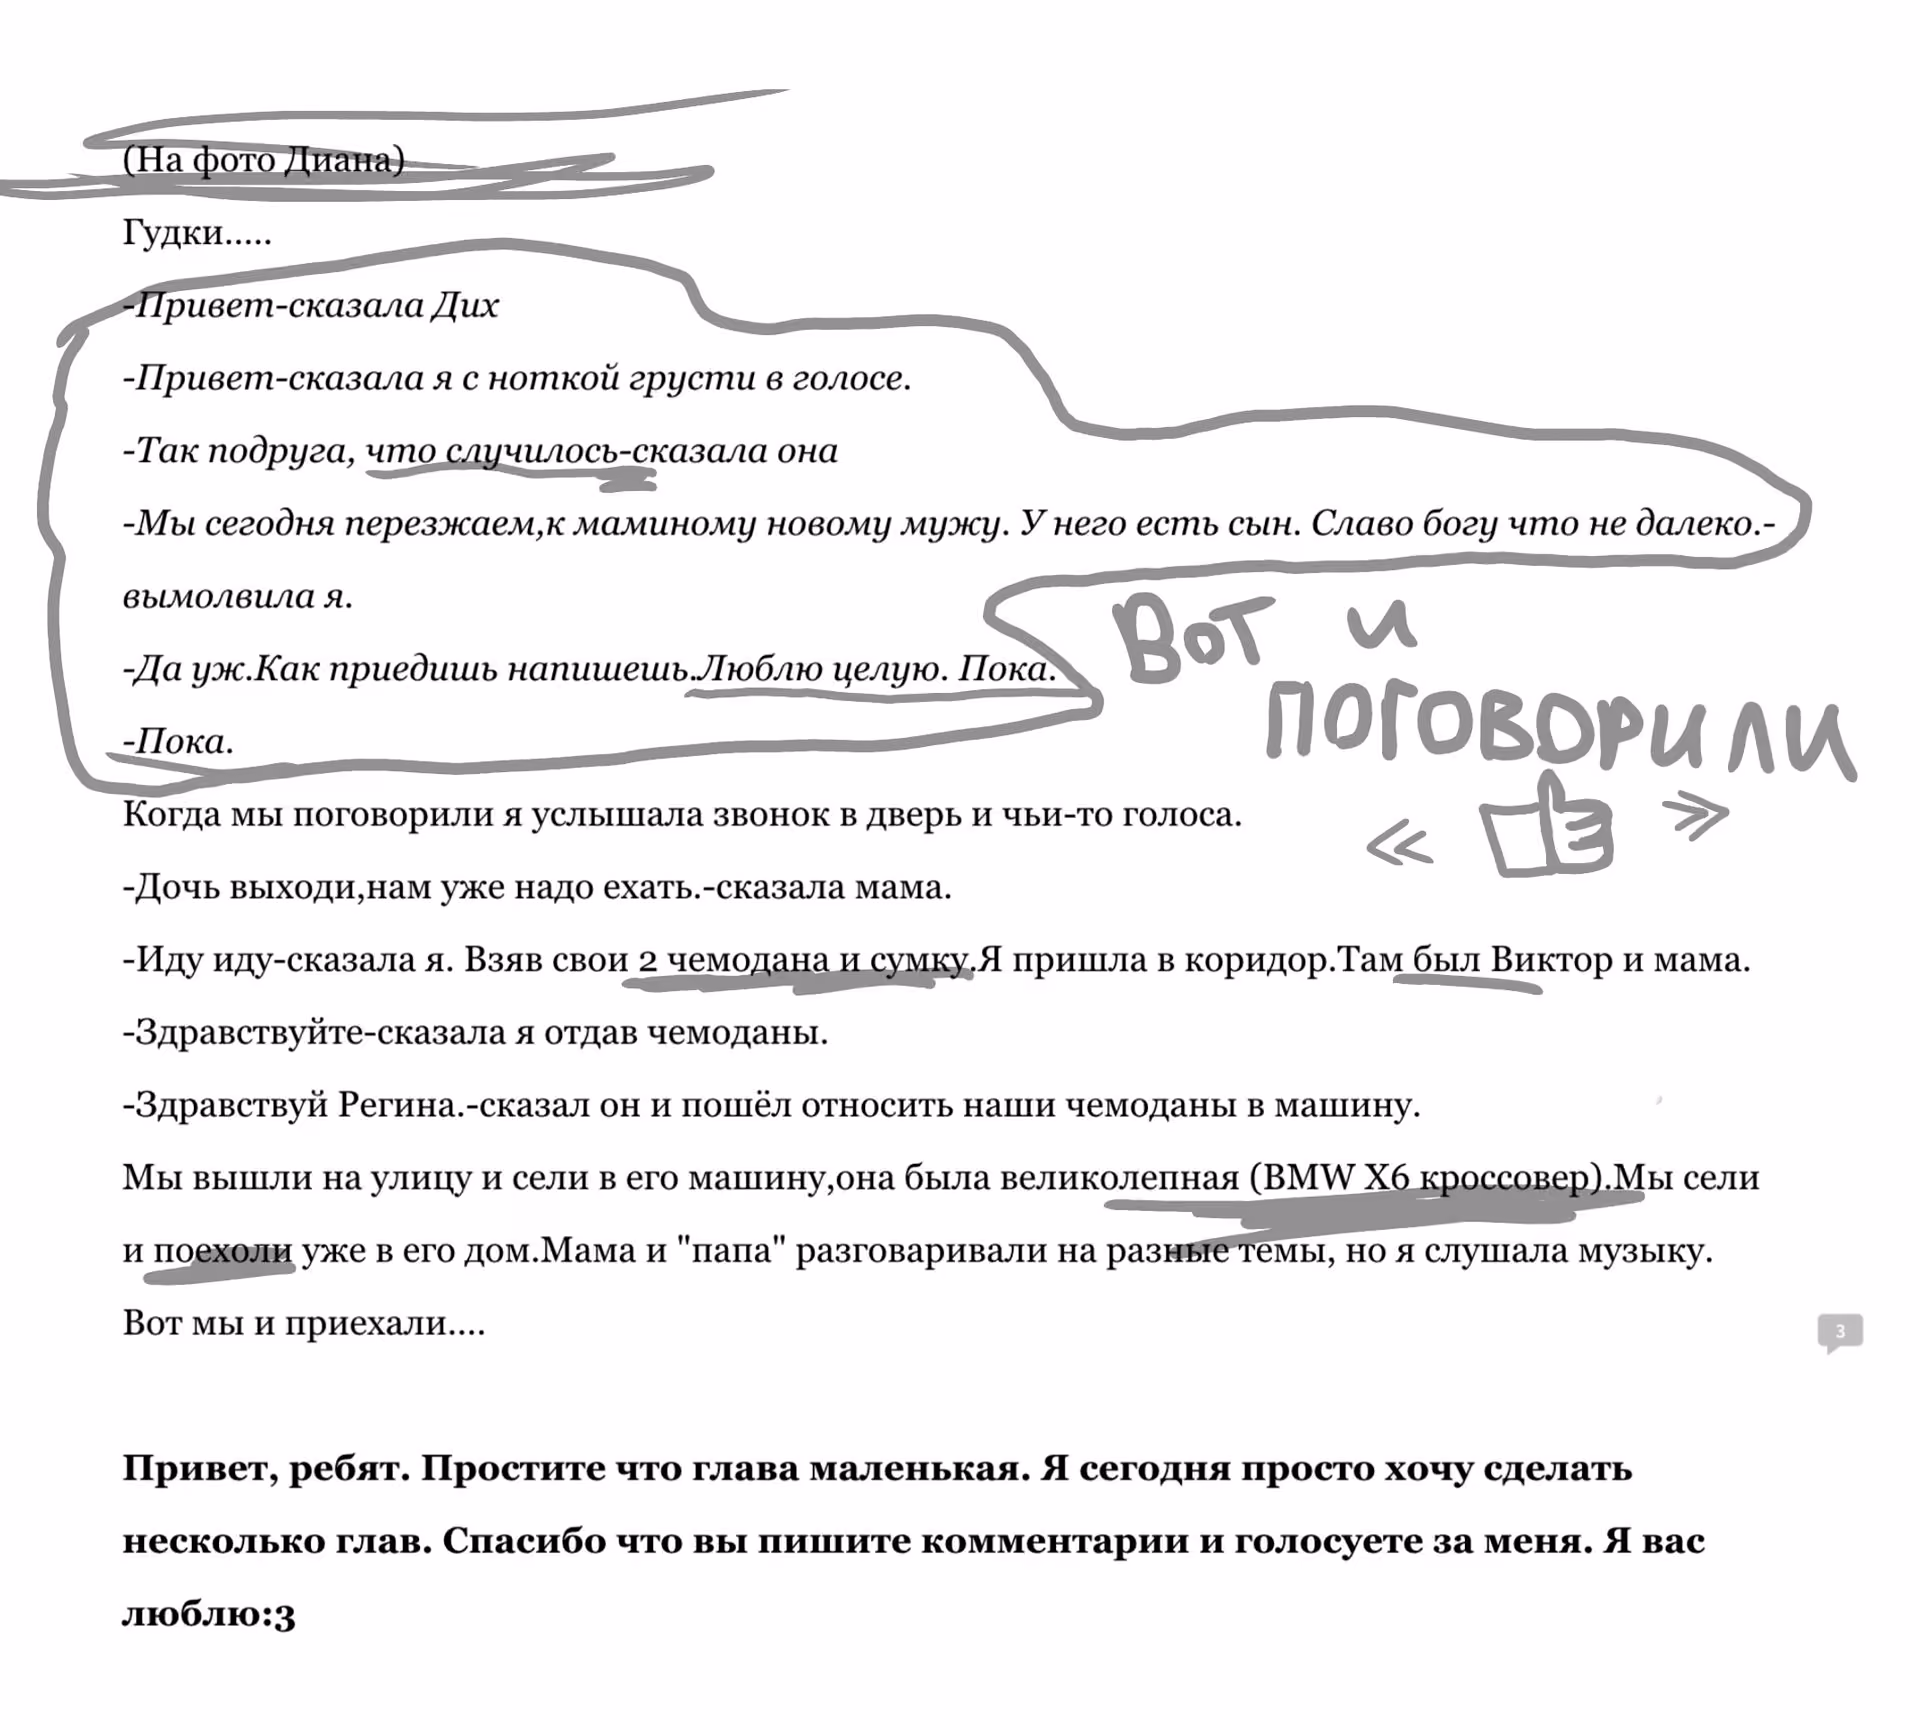 (На фото Диана)
Гудки.....
-Привет-сказала Дих
-Привет-сказала я с ноткой грусти в голосе.
-Так подруга, что случилось-сказала она
-Мы сегодня перезжаем,к маминому новому мужу. У него есть сын. Славо богу что не далеко.-
вымолвила я.
-Да уж.Как приедишь напишешь.Люблю целую. Пока.
-Пока.
Вот и
поговорили
Когда мы поговорили я услышала звонок в дверь и чьи-то голоса.
-Дочь выходи,нам уже надо ехать.-сказала мама.
-Иду иду-сказала я. Взяв свои 2 чемодана и сумку.Я пришла в коридор.Там был Виктор и мама.
-Здравствуйте-сказала я отдав чемоданы.
-Здравствуй Регина.-сказал он и пошёл относить наши чемоданы в машину.
Мы вышли на улицу и сели в его машину,она была великолепная (BMW X6 кроссовер).Мы сели
и поехоли уже в его дом.Мама и "папа" разговаривали на разные темы, но я слушала музыку.
Вот мы и приехали....
3
Привет, ребят. Простите что глава маленькая. Я сегодня просто хочу сделать
несколько глав. Спасибо что вы пишите комментарии и голосуете за меня. Я вас
люблю:3